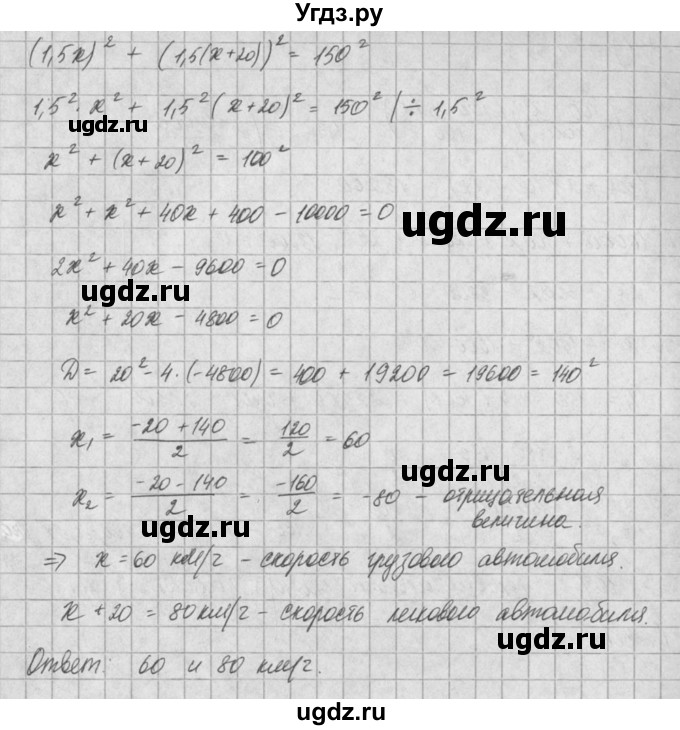 Угдз.ру
(1,5x)² + (1,5(x+20))² = 150²
1,5² · x² + 1,5²(x+20)² = 150² | ÷ 1,5²
ugdz.ru
x² + (x+20)² = 100²
x² + x² + 40x + 400 - 10000 = 0
ugdz.ru
2x² + 40x - 9600 = 0
ugdz.ru
x² + 20x - 4800 = 0
D = 20² - 4 · (-4800) = 400 + 19200 = 19600 = 140²
x₁ = (-20 + 140)/2 = 120/2 = 60
ugdz.ru
x₂ = (-20 - 140)/2 = -160/2 = -80 - отрицательная
величина.
ugdz.ru
=> x = 60 км/г - скорость грузового автомобиля.
x + 20 = 80 км/г - скорость легкового автомобиля.
ugdz.ru
Ответ: 60 и 80 км/г.
ugdz.ru